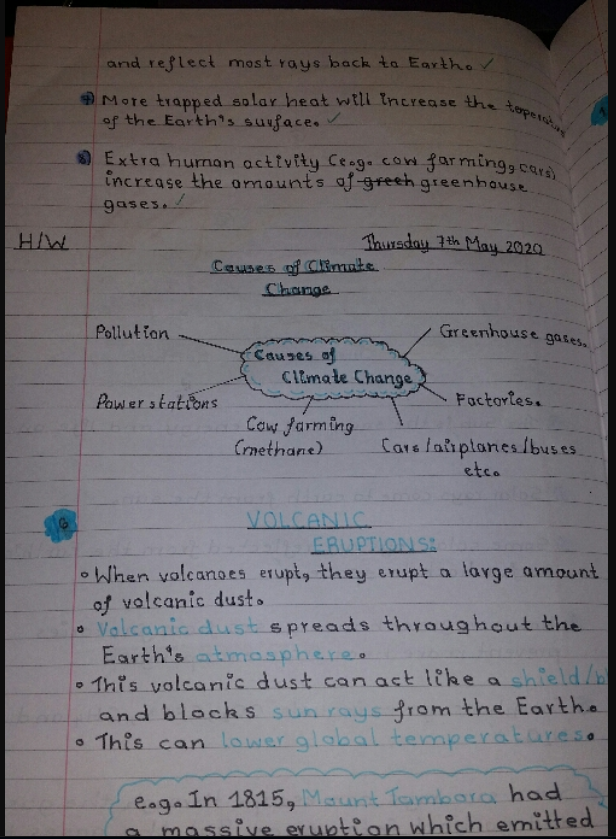 and reflect most rays back to Earth. ✓
4) More trapped solar heat will increase the
of the Earth's surface. ✓
5) Extra human activity (e.g. cow farming, cars)
increase the amounts of greeh greenhouse
gases. ✓
H/W
Thursday 7th May 2020
Causes of Climate
Change
Pollution
Greenhouse gases.
Causes of
Climate Change
Power stations
Factories.
Cow farming
(methane)
Cars/airplanes/buses
etc.
VOLCANIC
ERUPTIONS:
• When volcanoes erupt, they erupt a large amount
of volcanic dust.
• Volcanic dust spreads throughout the
Earth's atmosphere.
• This volcanic dust can act like a shield/
and blocks sun rays from the Earth.
• This can lower global temperatures.
e.g. In 1815, Mount Tambora had
a massive eruption which emitted